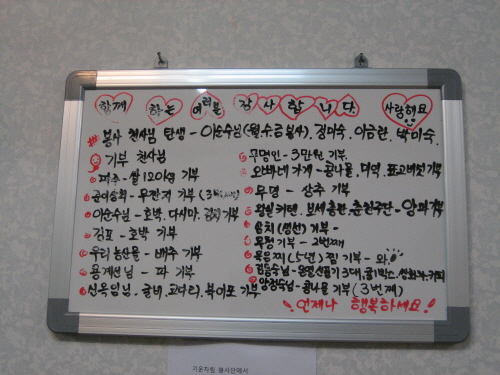 함께 하는 여러분 감사합니다 사랑해요
봉사 천사님 탄생 - 이순수님(월수금봉사), 김미숙, 이금란, 박미숙.
기부 천사님
파주 - 쌀 120kg 기부
- 무짠지 기부 (3
이순수님 - 호박, 다시마, 기부
김포 - 호박 기부
우리농산물 - 배추 기부
용계선님 - 파 기부
신옥임님 - 굴비, 고사리, 북어포 기부
무명인 - 3만원 기부.
오빠네 가게 - 콩나물, 미역, 표고버섯 기부
무명 - 상추 기부
커텐, 춘천 - 양파 기부
(생선) 기부
무명 기부 - 2번째
묵은지 (1년) 찜 기부 - 와
- 선풍기 3대, 커피
- 콩나물 기부 (3번째)
언제나 행복하세요!
기운차림 봉사단에서